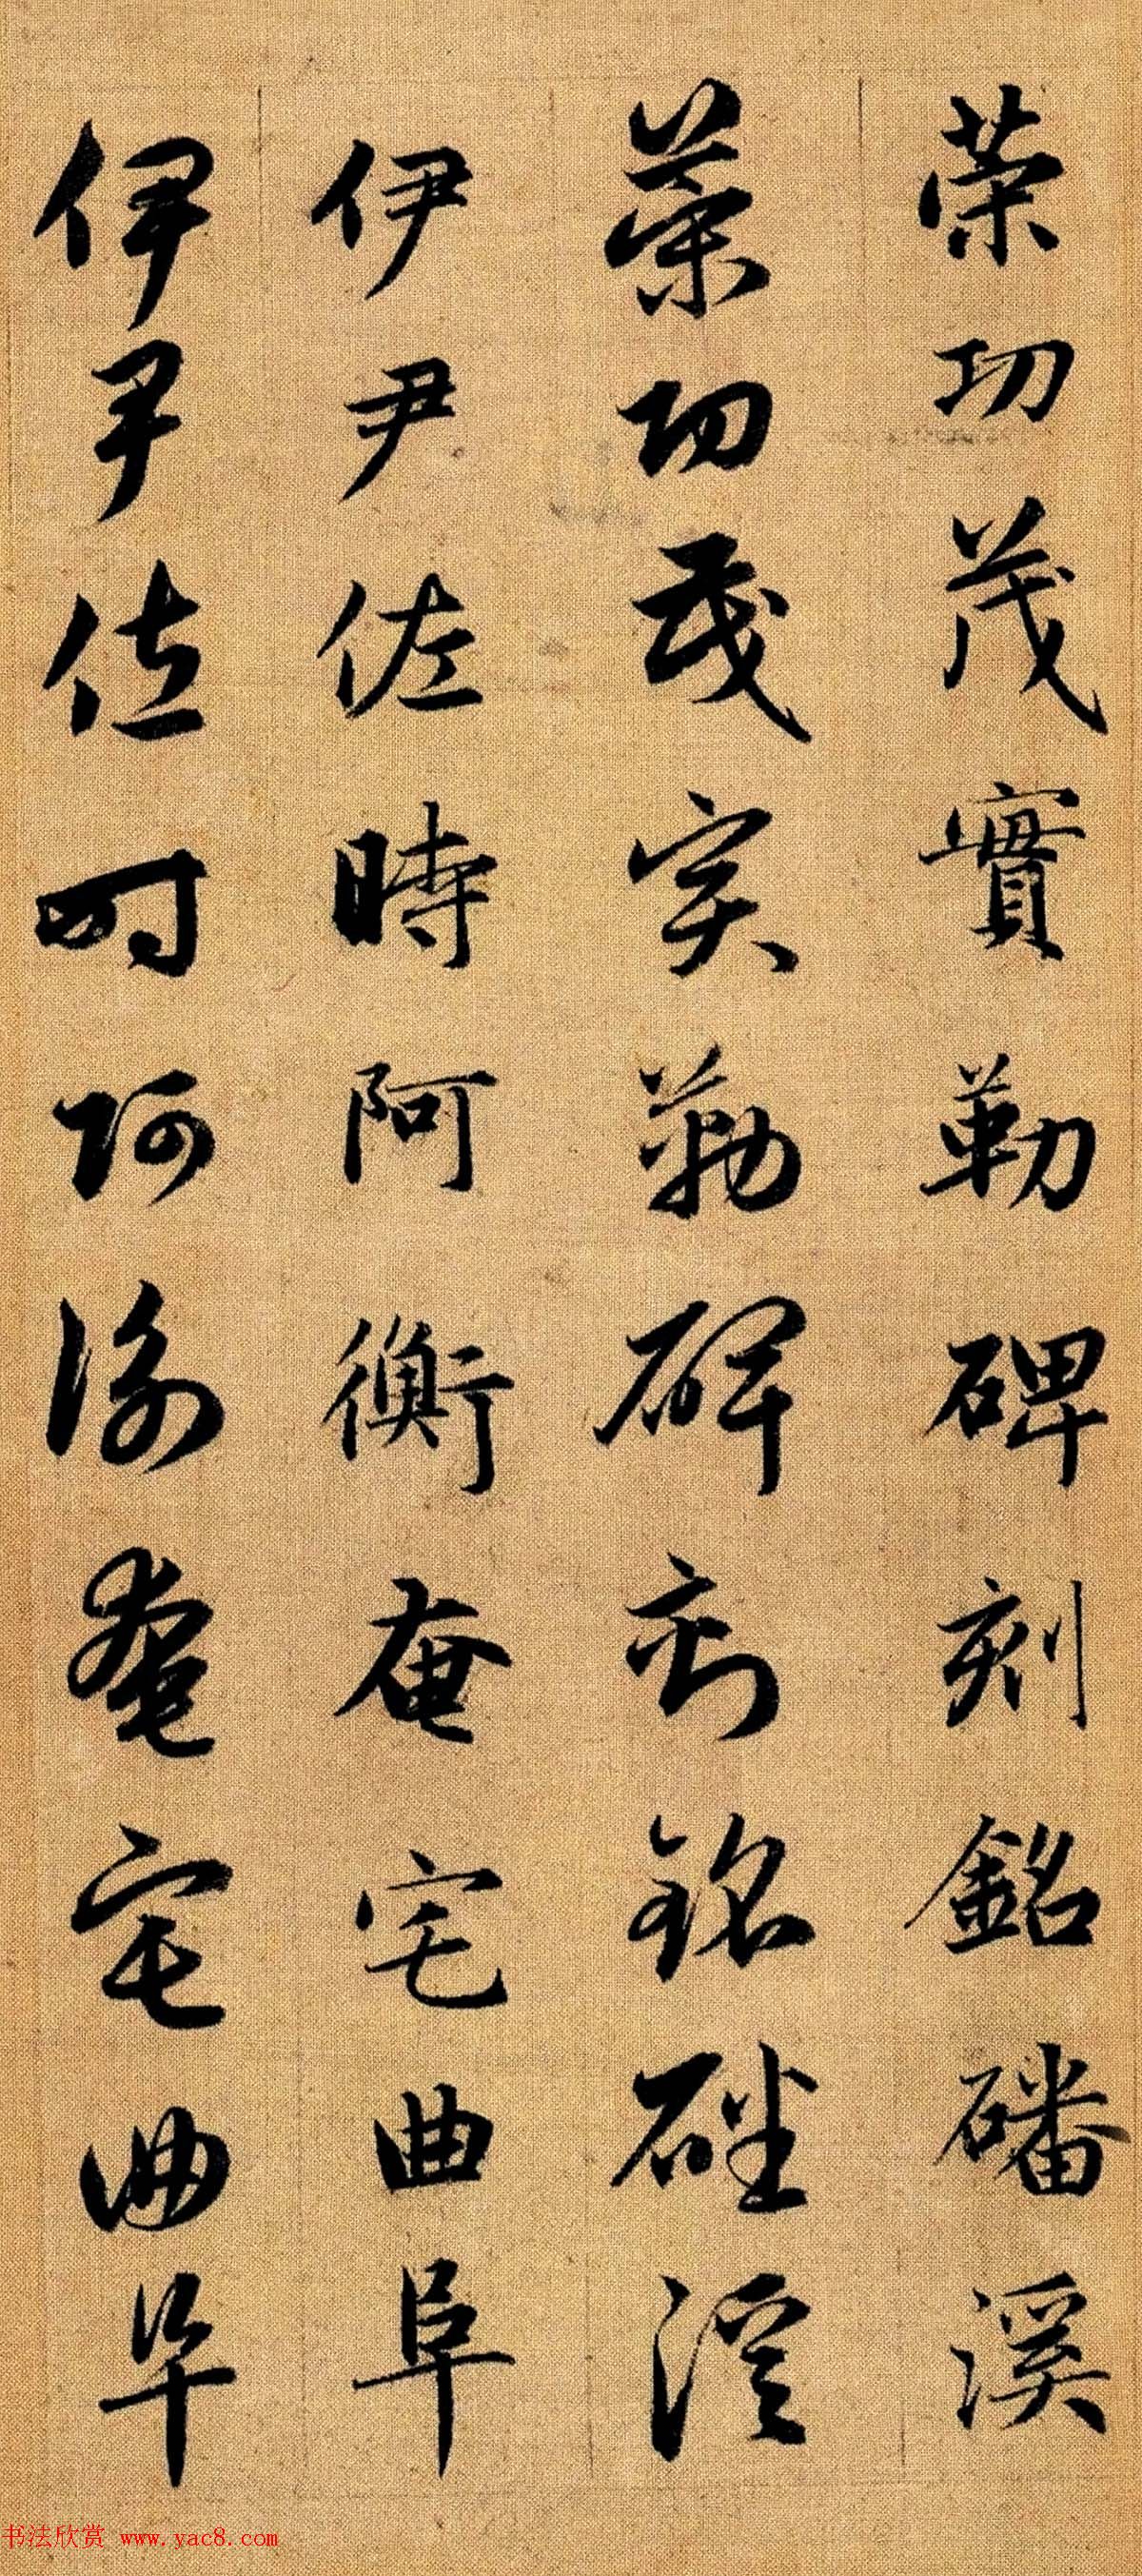 荣功茂實勒碑刻銘磻溪
荣功茂实勒碑刻銘磻溪
伊尹佐時阿衡奄宅曲阜
伊尹佐时阿衡奄宅曲阜
书法欣赏 www.yac8.com